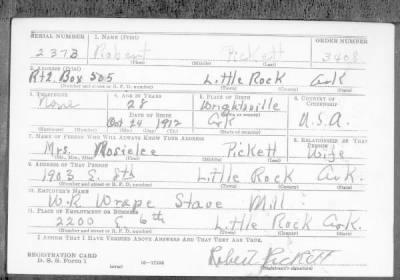 SERIAL NUMBER 1. NAME (Print) ORDER NUMBER
2373 Robert Pickett 3408
(First) (Middle) (Last)
2. ADDRESS (Print)
Rt 2. Box 505 Little Rock Ark
(Number and street or R. F. D. number) (Town) (County) (State)
3. TELEPHONE 4. AGE IN YEARS 5. PLACE OF BIRTH 6. COUNTRY OF CITIZENSHIP
None 28 Wrightsville
DATE OF BIRTH (Town or county)
Oct 24 1912 Ark U.S.A.
(Exchange) (Number) (Mo.) (Day) (Yr.) (State or country)
7. NAME OF PERSON WHO WILL ALWAYS KNOW YOUR ADDRESS 8. RELATIONSHIP OF THAT PERSON
Mrs. Rosielee Pickett Wife
(Mr., Mrs., Miss) (First) (Middle) (Last)
9. ADDRESS OF THAT PERSON
1903 S. 8th Little Rock Ark.
(Number and street or R. F. D. number) (Town) (County) (State)
10. EMPLOYER'S NAME
W.R. Wrape Stave Mill
11. PLACE OF EMPLOYMENT OR BUSINESS
2200 E 6th Little Rock Ark.
(Number and street or R. F. D. number) (Town) (County) (State)
I AFFIRM THAT I HAVE VERIFIED ABOVE ANSWERS AND THAT THEY ARE TRUE.
REGISTRATION CARD
D. S. S. Form 1 Robert Pickett
(over) 16-17105 (Registrant's signature)